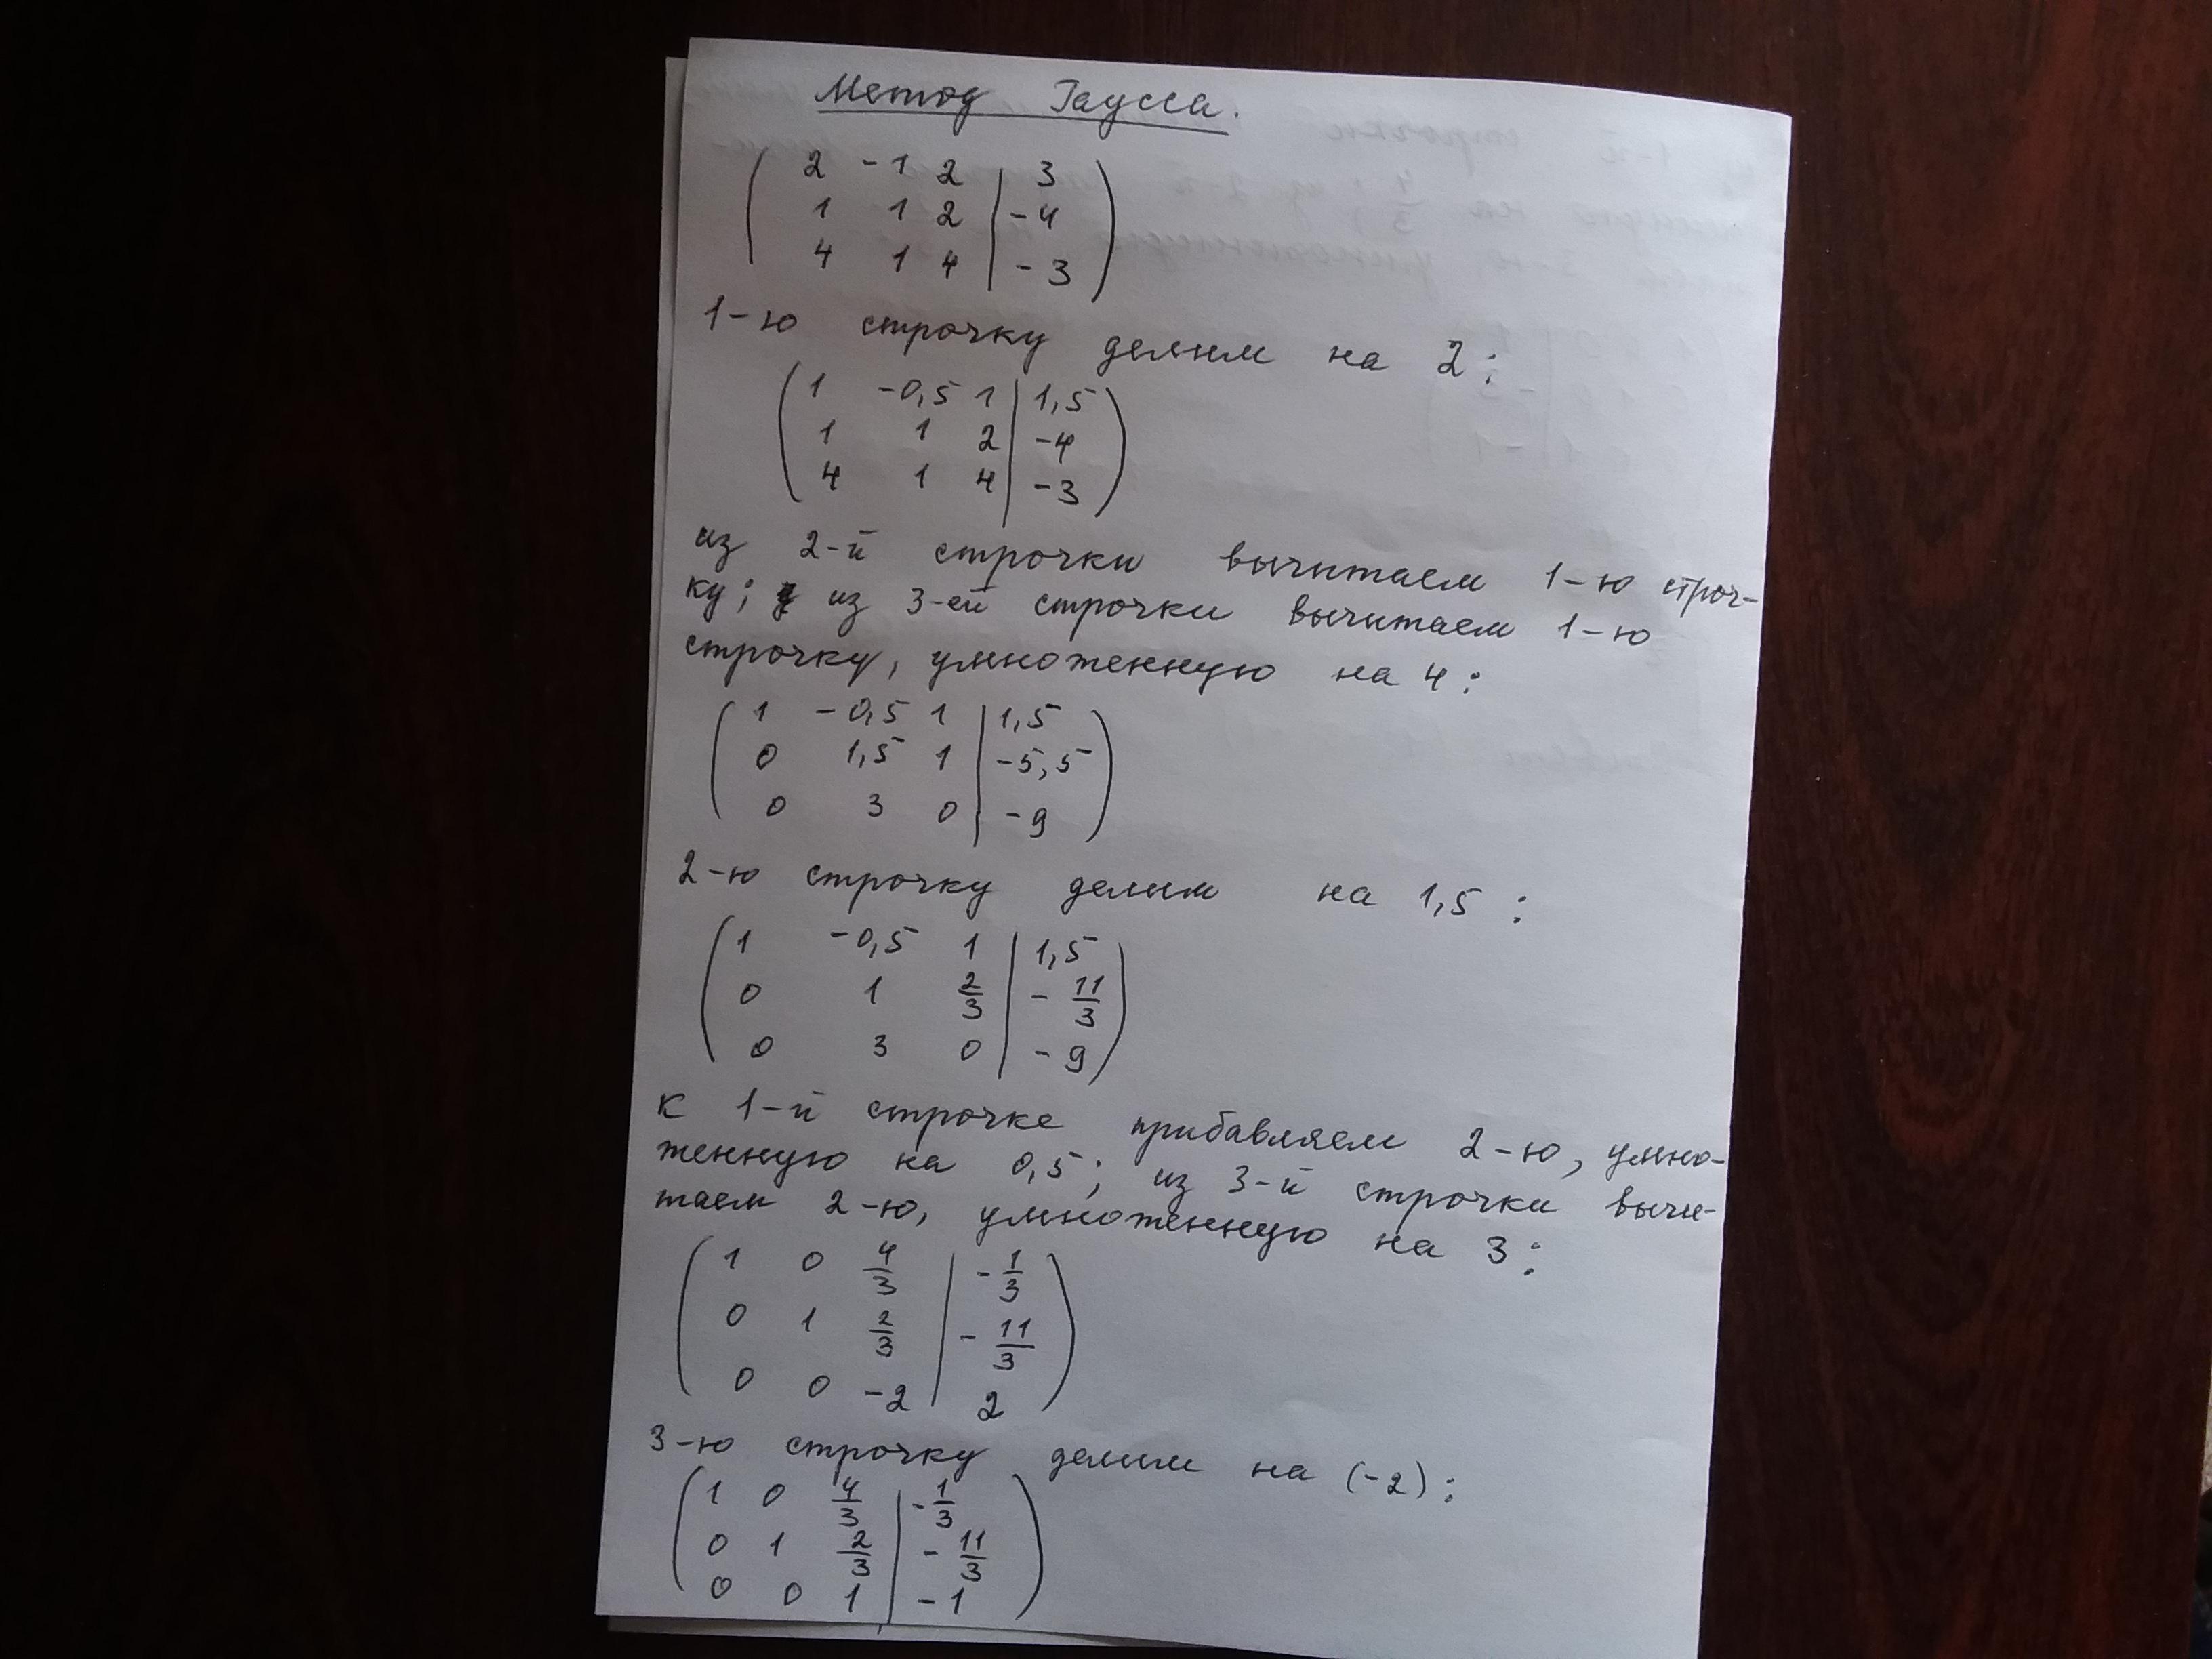 Метод Гаусса.
2 -1 2 | 3
1 1 2 | -4
4 1 4 | -3
1-ю строчку делим на 2:
1 -0,5 1 | 1,5
1 1 2 | -4
4 1 4 | -3
из 2-й строчки вычитаем 1-ю строч-
ку; из 3-ей строчки вычитаем 1-ю
строчку, умноженную на 4:
1 -0,5 1 | 1,5
0 1,5 1 | -5,5
0 3 0 | -9
2-ю строчку делим на 1,5:
1 -0,5 1 | 1,5
0 1 2/3 | -11/3
0 3 0 | -9
к 1-й строчке прибавляем 2-ю, умно-
женную на 0,5; из 3-й строчки вычи-
таем 2-ю, умноженную на 3:
1 0 4/3 | -1/3
0 1 2/3 | -11/3
0 0 -2 | 2
3-ю строчку делим на (-2):
1 0 4/3 | -1/3
0 1 2/3 | -11/3
0 0 1 | -1